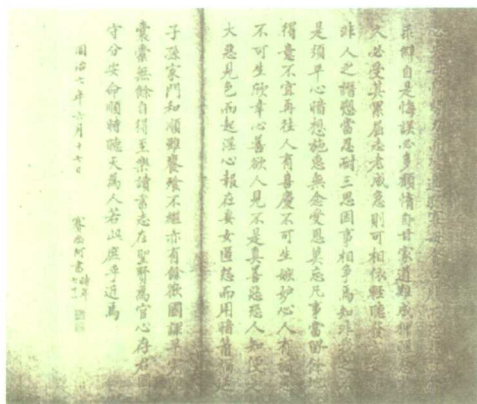 乖僻自是悔誤必多頹惰自甘家道難成狎暱
久必受其累屈志老成急則可相依輕聽發
非人之譖愬當忍耐三思因事相爭焉知非我之
是須平心暗想施惠無念受恩莫忘凡事當留餘地
得意不宜再往人有喜慶不可生嫉妒心人有禍
不可生欣幸心善欲人見不是真善惡恐人知便是
大惡見色而起淫心報在妻女匿怨而用暗箭禍延
子孫家門和順雖饔飧不繼亦有餘歡國課早
囊橐無餘自得至樂讀書志在聖賢為官心存君
守分安命順時聽天為人若此庶乎近焉
同治七年六月十七日
賽尚阿書時年